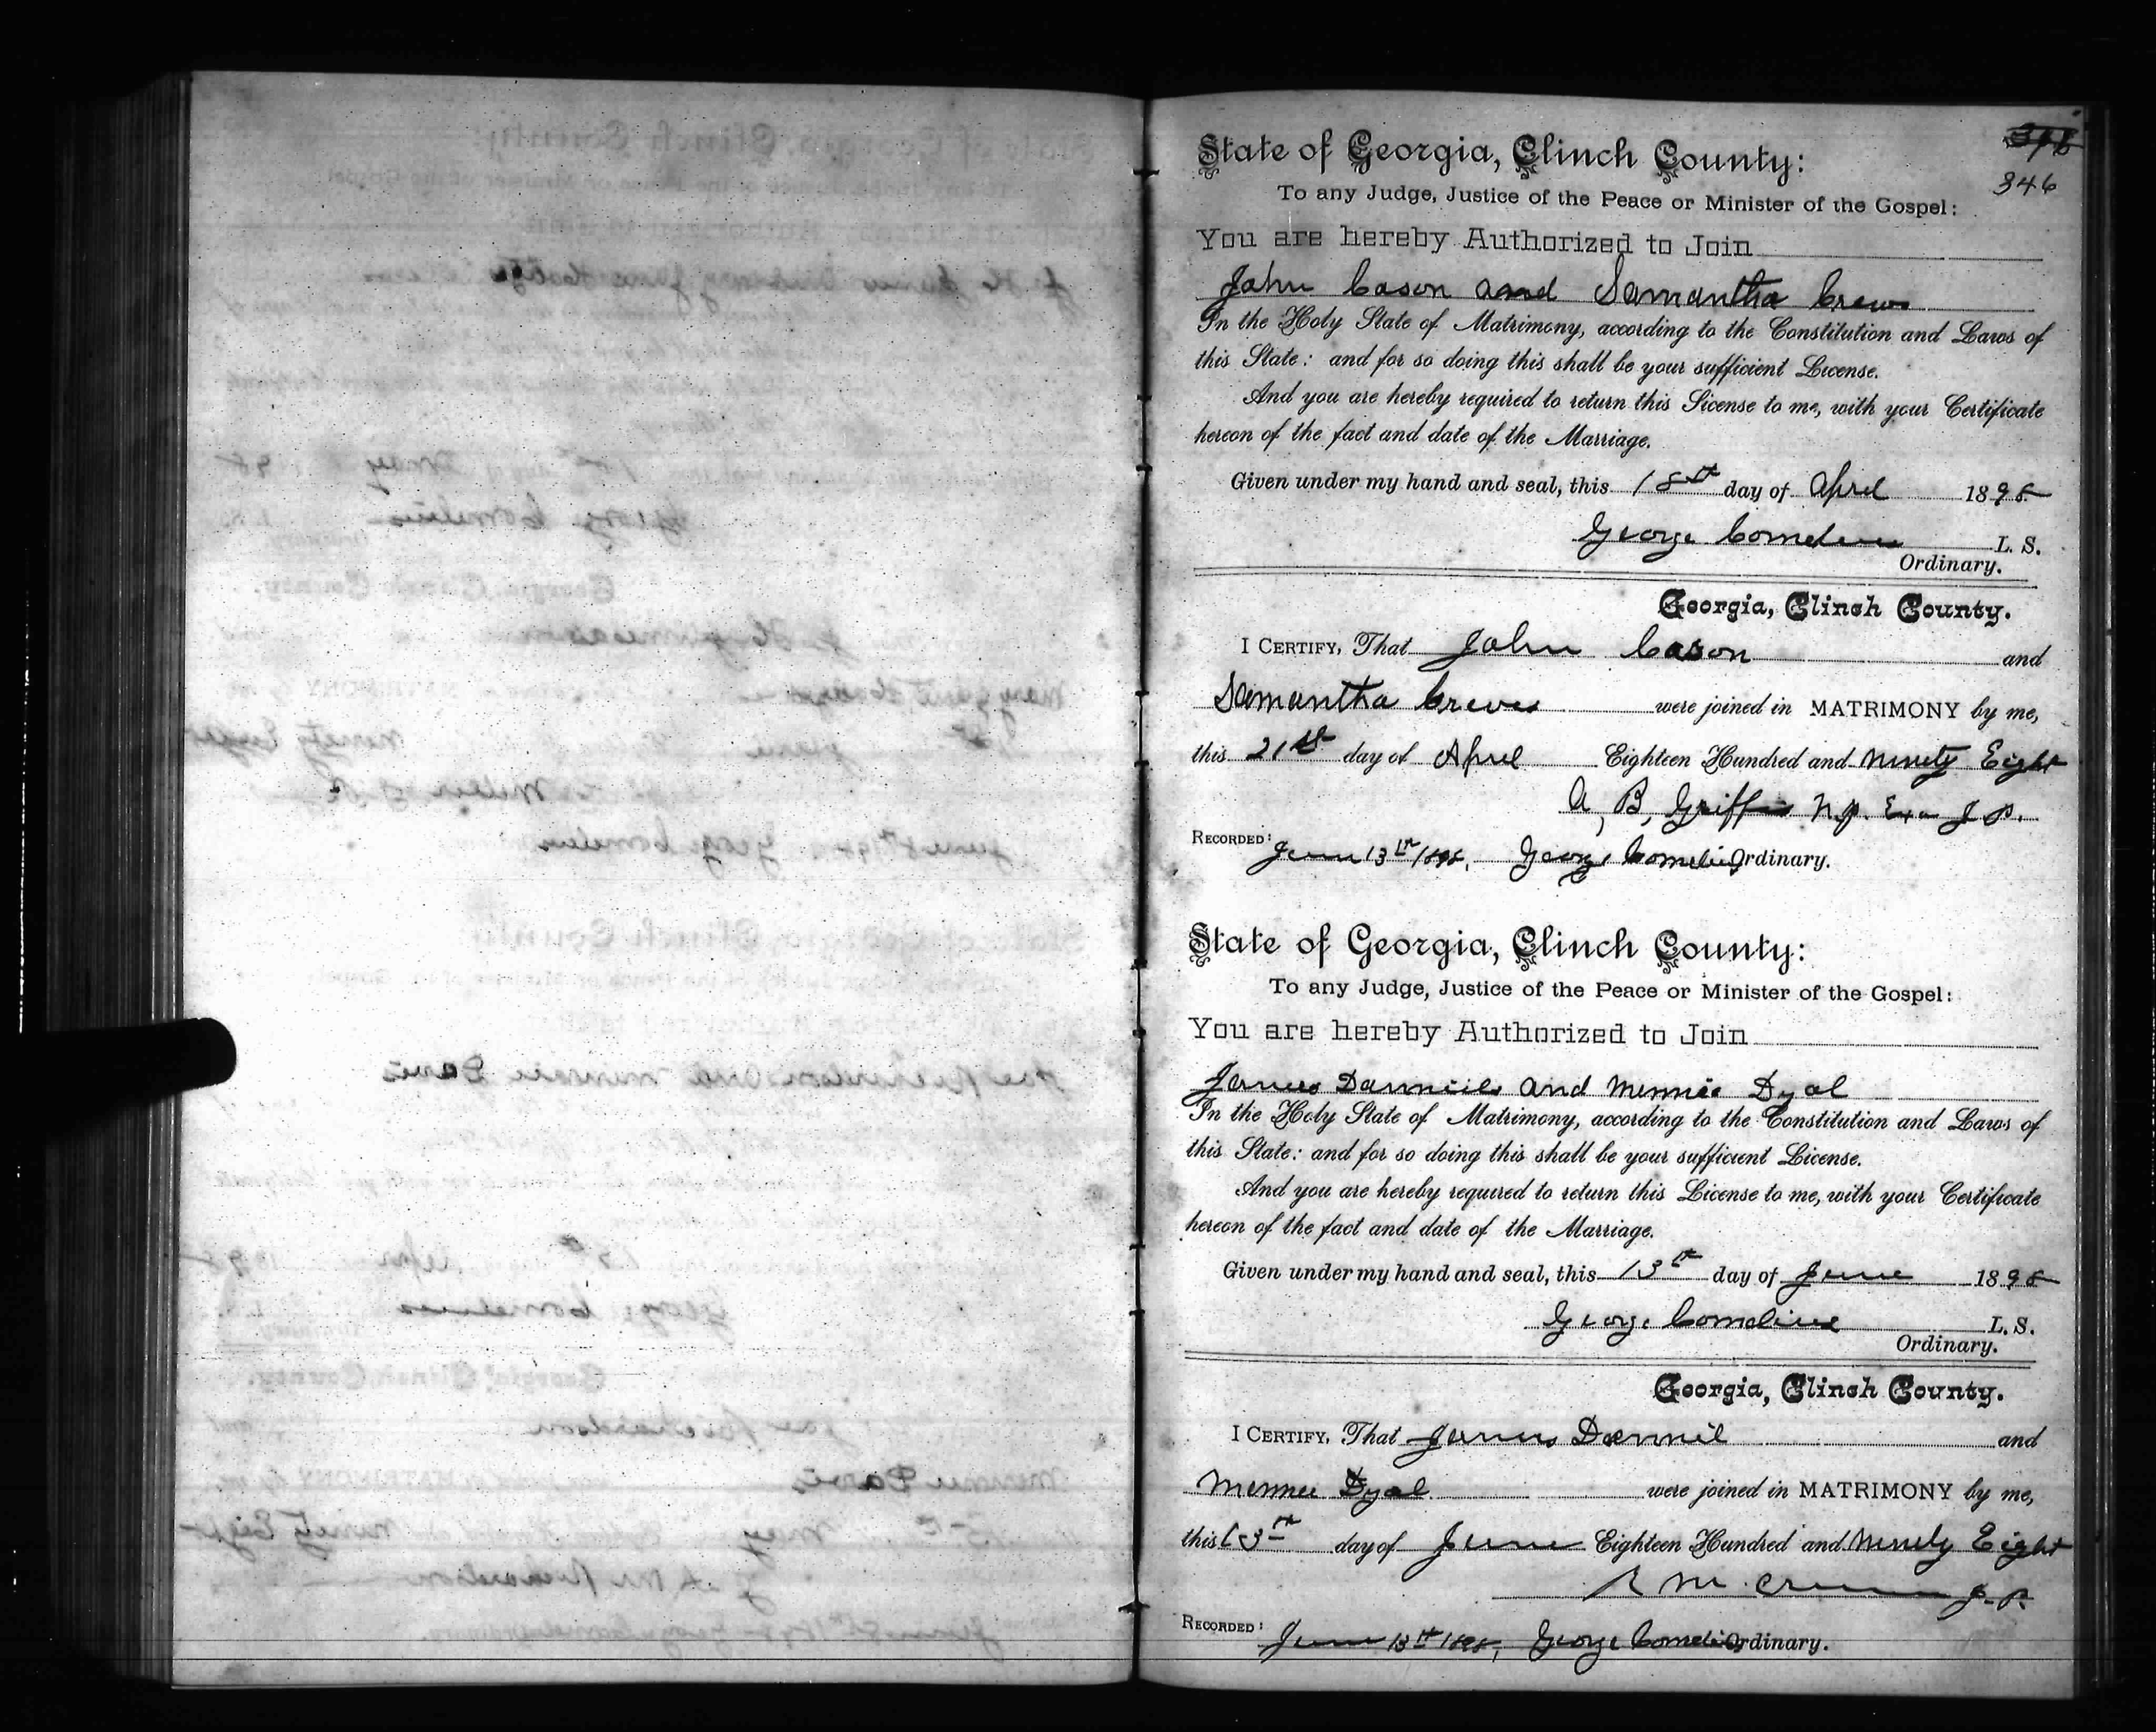 346
State of Georgia, Clinch County:
To any Judge, Justice of the Peace or Minister of the Gospel:
You are hereby Authorized to Join
John Cason and Samantha Crews
In the Holy State of Matrimony, according to the Constitution and Laws of
this State: and for so doing this shall be your sufficient License.
And you are hereby required to return this License to me, with your Certificate
hereon of the fact and date of the Marriage.
Given under my hand and seal, this 18th day of April 1898
George Cornelius L. S.
Ordinary.
Georgia, Clinch County.
I CERTIFY, That John Cason and
Samantha Crews were joined in MATRIMONY by me,
this 21st day of April Eighteen Hundred and Ninety Eight
A, B, Griffis N.P. Ex J P.
RECORDED: June 13th 1898, George Cornelius Ordinary.
State of Georgia, Clinch County:
To any Judge, Justice of the Peace or Minister of the Gospel:
You are hereby Authorized to Join
James Danniels and Mennie Dyal
In the Holy State of Matrimony, according to the Constitution and Laws of
this State: and for so doing this shall be your sufficient License.
And you are hereby required to return this License to me, with your Certificate
hereon of the fact and date of the Marriage.
Given under my hand and seal, this 13th day of June 1898
George Cornelius L. S.
Ordinary.
Georgia, Clinch County.
I CERTIFY, That James Danniel and
Mennie Dyal were joined in MATRIMONY by me,
this 13th day of June Eighteen Hundred and Ninety Eight
J. P.
RECORDED: June 13th 1898, George Cornelius Ordinary.